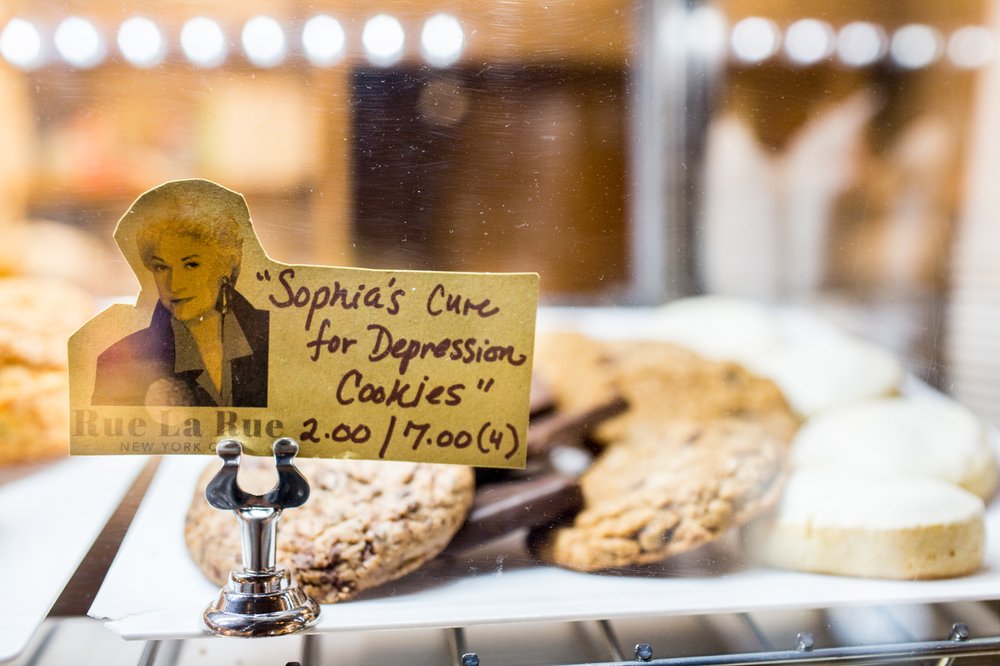 "Sophia's Cure
for Depression
Cookies"
2.00/7.00(4)
Rue La Rue
NEW YORK C